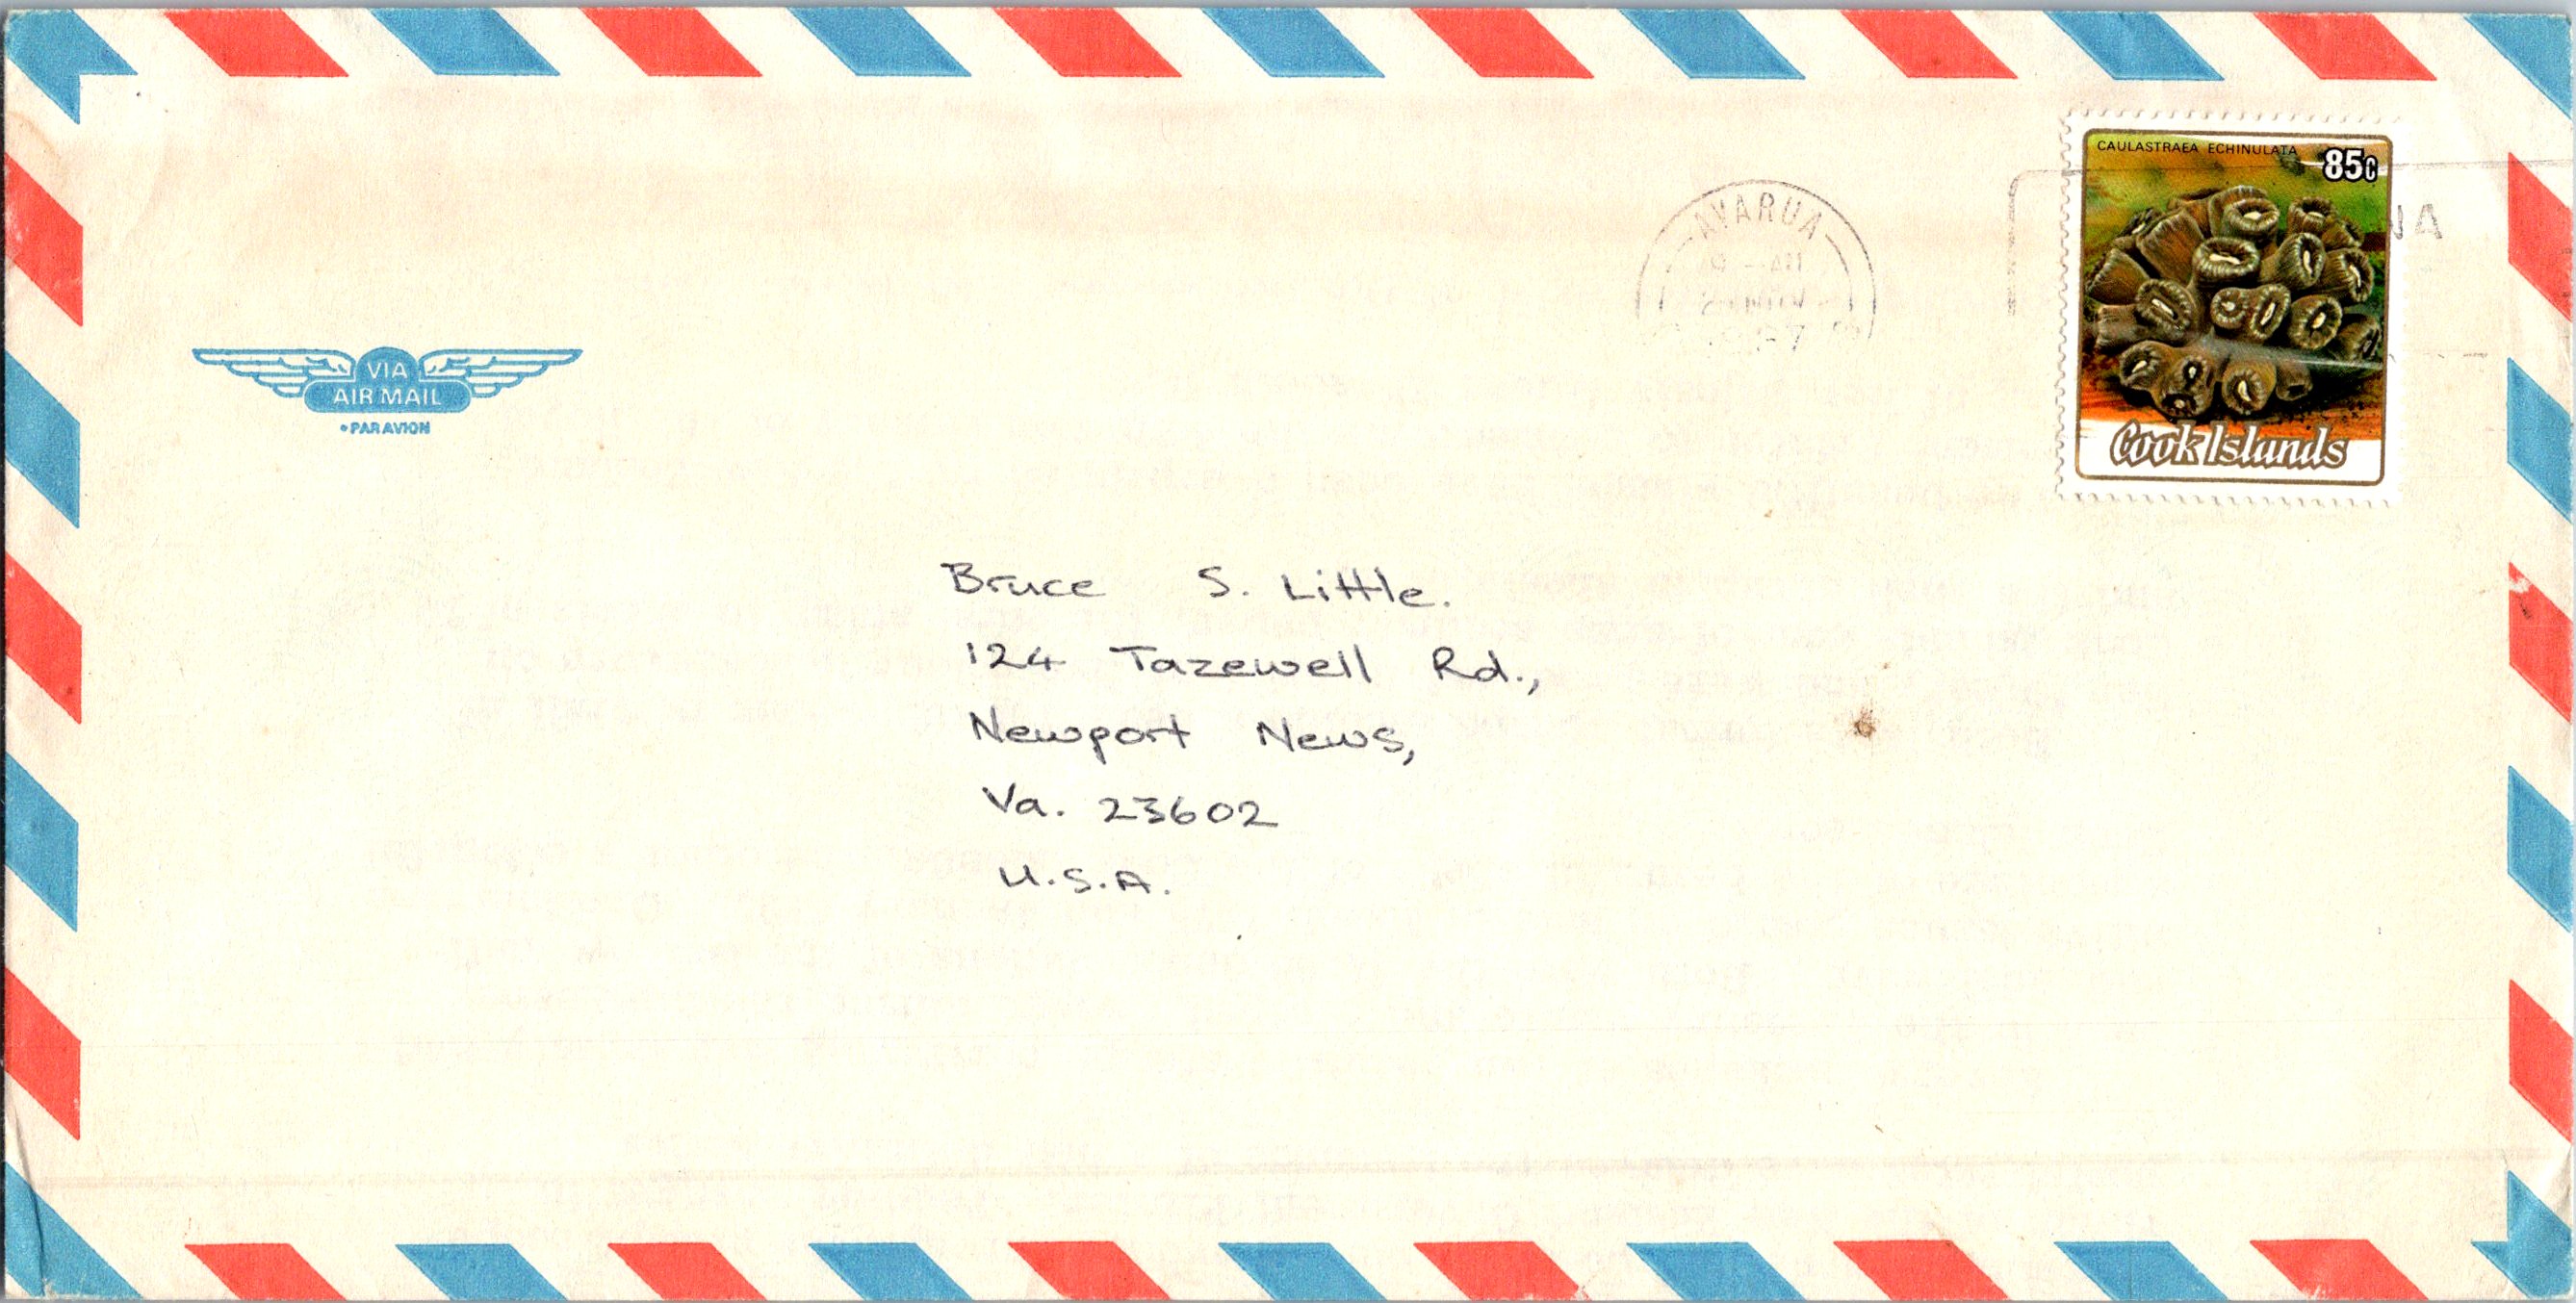 CAULASTRAEA ECHINULATA
85c
AVARUA
Cook Islands
VIA
AIR MAIL
•PAR AVION
Bruce S. Little.
124 Tazewell Rd.,
Newport News,
Va. 23602
U.S.A.